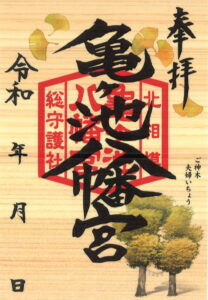 奉拝
亀ヶ池八幡宮
北相模
総守護社
ご神木
夫婦いちょう
令和 年 月 日